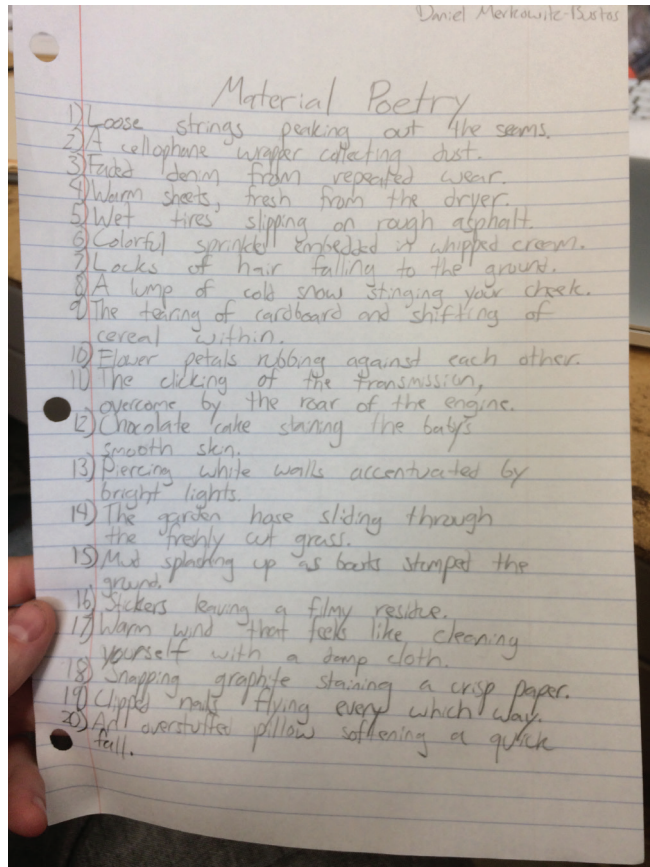 Daniel Merkowitz-Bustos
Material Poetry
1) Loose strings peaking out the seams.
2) A cellophane wrapper collecting dust.
3) Faded denim from repeated wear.
4) Warm sheets, fresh from the dryer.
5) Wet tires slipping on rough asphalt.
6) Colorful sprinkles embedded in whipped cream.
7) Locks of hair falling to the ground.
8) A lump of cold snow stinging your cheek.
9) The tearing of cardboard and shifting of
cereal within.
10) Flower petals rubbing against each other.
11) The clicking of the transmission,
overcome by the roar of the engine.
12) Chocolate cake staining the baby's
smooth skin.
13) Piercing white walls accentuated by
bright lights.
14) The garden hose sliding through
the freshly cut grass.
15) Mud splashing up as boots stomped the
ground.
16) Stickers leaving a filmy residue.
17) Warm wind that feels like cleaning
yourself with a damp cloth.
18) Snapping graphite staining a crisp paper.
19) Clipped nails flying every which way.
20) An overstuffed pillow softening a quick
fall.